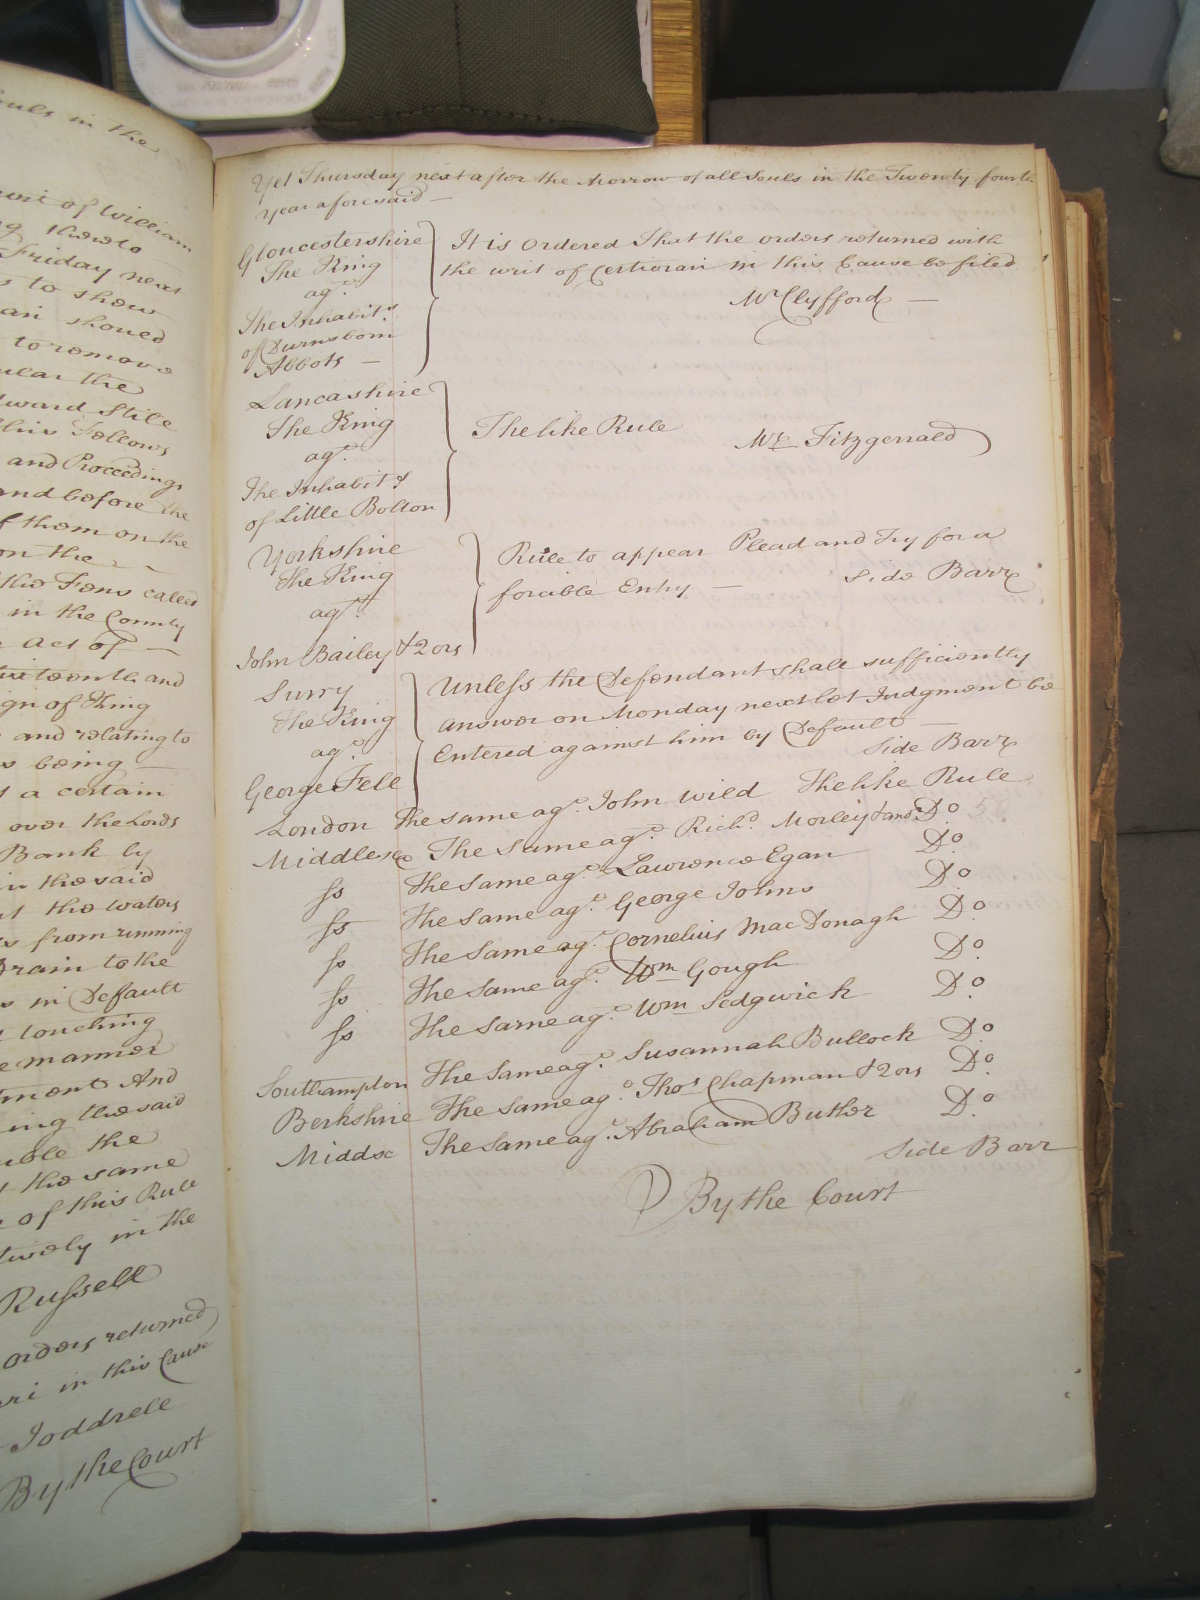 ouls in the
writ of William
thereto
Friday next
s to show
ari should
to remove
ular the
dward Stile
this Follows
and Proceedings
and before the
of them on the
on the
the Fens called
in the County
act of —
and
ign of King
and relating to
s being —
a certain
over the Lords
Bank by
in the said
the waters
from running
Drain to the
s in Default
touching
e manner
ment And
ing the said
the
the same
of this Rule
in the
Russell
orders returned
ri in this Cause
Joddrell
By the Court
Yet Thursday next after the Morrow of all Souls in the Twenty fourth
Year aforesaid —
Gloucestershire
The King
agt.
The Inhabits.
of Durnsborn
Abbots —
It is Ordered That the orders returned with
the writ of Certiorari in this Cause be filed
Mr Clyfford —
Lancashire
The King
agt.
The Inhabits
of Little Bolton
The like Rule
Mr. Fitzgerrald
Yorkshire
The King
agt.
John Bailey & 2 ors
Rule to appear Plead and Try for a
forcible Entry — Side Barr
Surry
The King
agt.
George Fell
Unless the Defendant shall sufficiently
answer on Monday next let Judgment be
Entered against him by Default —
Side Barr
London The same agt. John Wild The like Rule
Middlesex The Same agt. Richd. Morley & anor Do
ss The Same agt. Lawrence Egan Do.
ss The Same agt. George Johns Do.
ss The Same agt. Cornelius Mac Donagh Do.
ss The Same agt. Wm Gough Do.
ss The Same agt. Wm Sedgwick Do.
Southampton The Same agt. Susannah Bullock Do.
Berkshire The Same agt. Thos Chapman & 2 ors Do.
Middx The Same agt. Abraham Butler Do.
Side Barr
By the Court